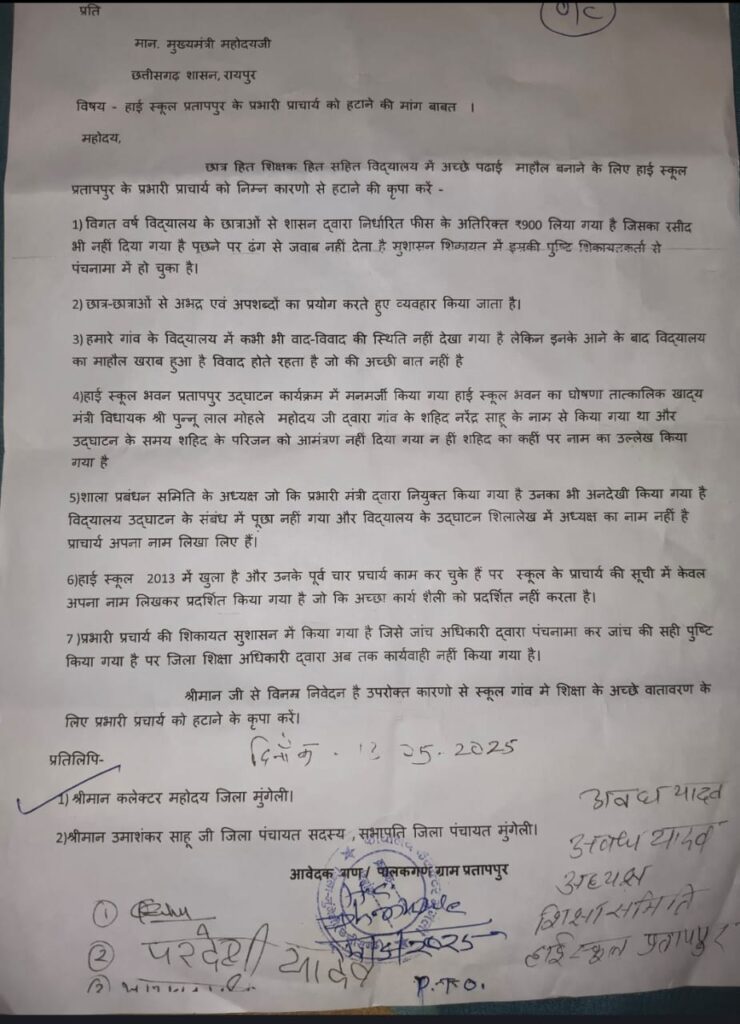 प्रति
मान. मुख्यमंत्री महोदयजी
छतीसगढ़ शासन, रायपुर
विषय - हाई स्कूल प्रतापपुर के प्रभारी प्राचार्य को हटाने की मांग बाबत ।
महोदय,
छात्र हित शिक्षक हित सहित विद्यालय में अच्छे पढाई माहौल बनाने के लिए हाई स्कूल
प्रतापपुर के प्रभारी प्राचार्य को निम्न कारणो से हटाने की कृपा करें -
1) विगत वर्ष विद्यालय के छात्राओं से शासन द्वारा निर्धारित फीस के अतिरिक्त ₹900 लिया गया है जिसका रसीद
भी नहीं दिया गया है पूछने पर ढंग से जवाब नहीं देता है सुशासन शिकायत में इसकी पुष्टि शिकायतकर्ता से
पंचनामा में हो चुका है।
2) छात्र-छात्राओं से अभद्र एवं अपशब्दों का प्रयोग करते हुए व्यवहार किया जाता है।
3) हमारे गांव के विद्यालय में कभी भी वाद-विवाद की स्थिति नहीं देखा गया है लेकिन इनके आने के बाद विद्यालय
का माहौल खराब हुआ है विवाद होते रहता है जो की अच्छी बात नहीं है
4)हाई स्कूल भवन प्रतापपुर उद्घाटन कार्यक्रम में मनमर्जी किया गया हाई स्कूल भवन का घोषणा तात्कालिक खाद्य
मंत्री विधायक श्री पुन्नू लाल मोहले महोदय जी द्वारा गांव के शहिद नरेंद्र साहू के नाम से किया गया था और
उद्घाटन के समय शहिद के परिजन को आमंत्रण नहीं दिया गया न हीं शहिद का कहीं पर नाम का उल्लेख किया
गया है
5)शाला प्रबंधन समिति के अध्यक्ष जो कि प्रभारी मंत्री द्वारा नियुक्त किया गया है उनका भी अनदेखी किया गया है
विद्यालय उद्घाटन के संबंध में पूछा नहीं गया और विद्यालय के उद्घाटन शिलालेख में अध्यक्ष का नाम नहीं है
प्राचार्य अपना नाम लिखा लिए हैं।
6)हाई स्कूल 2013 में खुला है और उनके पूर्व चार प्रचार्य काम कर चुके हैं पर स्कूल के प्राचार्य की सूची में केवल
अपना नाम लिखकर प्रदर्शित किया गया है जो कि अच्छा कार्य शैली को प्रदर्शित नहीं करता है।
7 )प्रभारी प्रचार्य की शिकायत सुशासन में किया गया है जिसे जांच अधिकारी द्वारा पंचनामा कर जांच की सही पुष्टि
किया गया है पर जिला शिक्षा अधिकारी द्वारा अब तक कार्यवाही नहीं किया गया है।
श्रीमान जी से विनम्र निवेदन है उपरोक्त कारणो से स्कूल गांव मे शिक्षा के अच्छे वातावरण के
लिए प्रभारी प्रचार्य को हटाने के कृपा करें।
प्रतिलिपि-
दिनाँक - 05.2025
1) श्रीमान कलेक्टर महोदय जिला मुंगेली।
2)श्रीमान उमाशंकर साहू जी जिला पंचायत सदस्य ,सभापति जिला पंचायत मुंगेली।
आवेदक गण / पालकगण ग्राम प्रतापपुर
अवध यादव
अवध यादव
अध्यक्ष
शिक्षा समिति
हाई स्कूल प्रतापपुर
①
② परदेशी यादव
③
P.T.O.